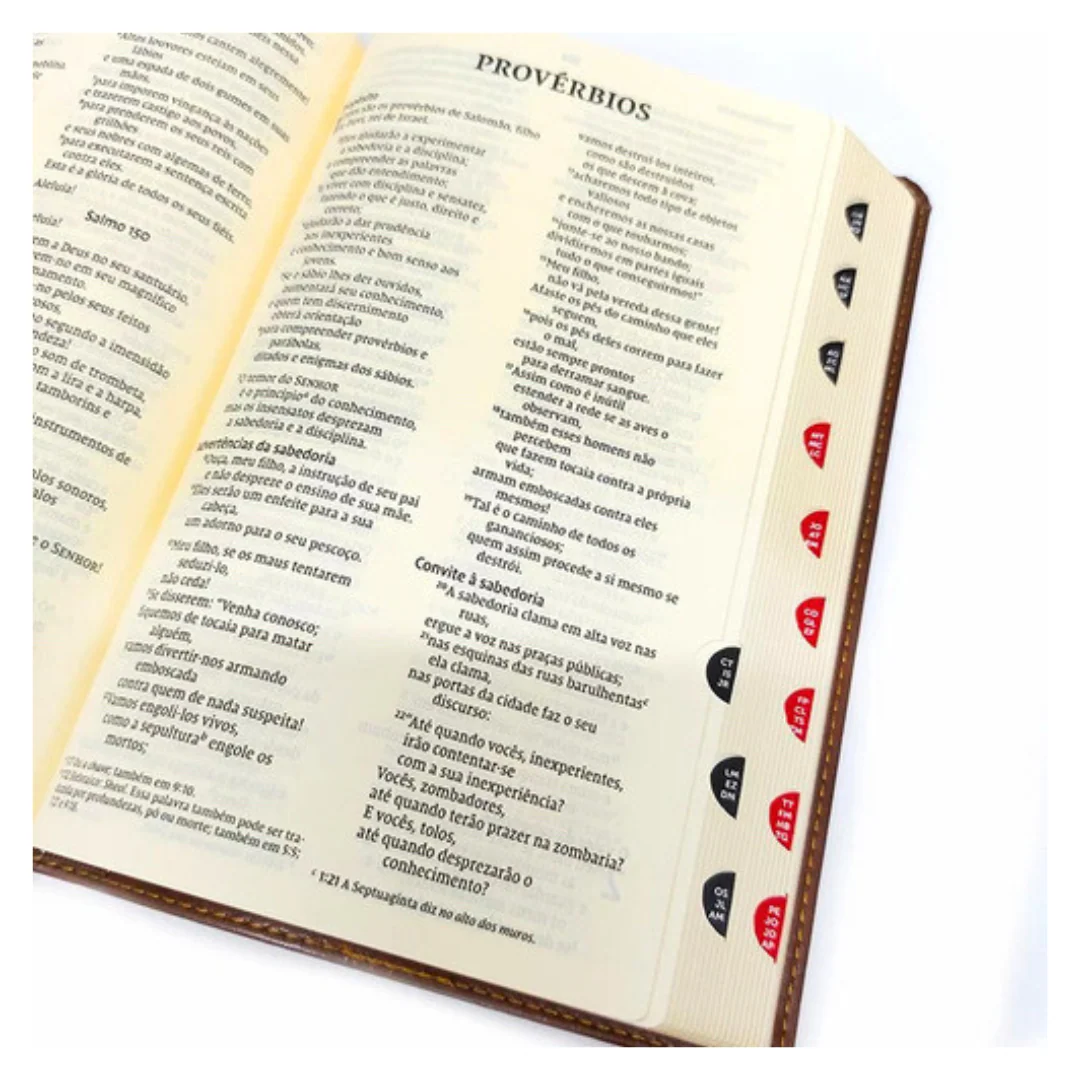 Altos louvores estejam em seus
lábios
e uma espada de dois gumes em suas
mãos,
para imporem vingança às nações
e trazerem castigo aos povos,
para prenderem os seus reis com
grilhões
e seus nobres com algemas de ferro,
para executarem a sentença escrita
contra eles.
Esta é a glória de todos os seus fiéis.
Aleluia!
Salmo 150
a Deus no seu santuário,
em seu magnífico
pelos seus feitos
segundo a imensidão
som de trombeta,
a lira e a harpa,
tamborins e
instrumentos de
sonoros,
e o SENHOR!
PROVÉRBIOS
são os provérbios de Salomão, filho
rei de Israel.
ajudarão a experimentar
a sabedoria e a disciplina;
compreender as palavras
que dão entendimento;
viver com disciplina e sensatez,
fazendo o que é justo, direito e
correto;
ajudarão a dar prudência
aos inexperientes
e conhecimento e bom senso aos
jovens.
Se o sábio lhes der ouvidos,
aumentará seu conhecimento,
e quem tem discernimento
obterá orientação
para compreender provérbios e
parábolas,
ditados e enigmas dos sábios.
O temor do SENHOR
é o princípio do conhecimento,
mas os insensatos desprezam
a sabedoria e a disciplina.
Advertências da sabedoria
Ouça, meu filho, a instrução de seu pai
e não despreze o ensino de sua mãe.
Eles serão um enfeite para a sua
cabeça,
um adorno para o seu pescoço.
Meu filho, se os maus tentarem
seduzi-lo,
não ceda!
Se disserem: "Venha conosco;
fiquemos de tocaia para matar
alguém,
vamos divertir-nos armando
emboscada
contra quem de nada suspeita!
Vamos engoli-los vivos,
como a sepultura b engole os
mortos;
também em 9:10.
Sheol. Essa palavra também pode ser tra-
por profundezas, pó ou morte; também em 5:5;
vamos destruí-los inteiros,
como são destruídos
os que descem à cova;
acharemos todo tipo de objetos
valiosos
e encheremos as nossas casas
com o que roubarmos;
junte-se ao nosso bando;
dividiremos em partes iguais
tudo o que conseguirmos!"
Meu filho,
não vá pela vereda dessa gente!
Afaste os pés do caminho que eles
seguem,
pois os pés deles correm para fazer
o mal,
estão sempre prontos
para derramar sangue.
Assim como é inútil
estender a rede se as aves o
observam,
também esses homens não
percebem
que fazem tocaia contra a própria
vida;
armam emboscadas contra eles
mesmos!
Tal é o caminho de todos os
gananciosos;
quem assim procede a si mesmo se
destrói.
Convite à sabedoria
20 A sabedoria clama em alta voz nas
ruas,
ergue a voz nas praças públicas;
21 nas esquinas das ruas barulhentas c
ela clama,
nas portas da cidade faz o seu
discurso:
22 "Até quando vocês, inexperientes,
irão contentar-se
com a sua inexperiência?
Vocês, zombadores,
até quando terão prazer na zombaria?
E vocês, tolos,
até quando desprezarão o
conhecimento?
c 1:21 A Septuaginta diz no alto dos muros.
CT
IS
JR
LM
EZ
DN
OS
JL
AM
MT
MC
LC
JO
AT
RM
CO
GL
EF
FP
CL
TS
TM
TT
FM
HB
TG
PE
JO
JD
AP